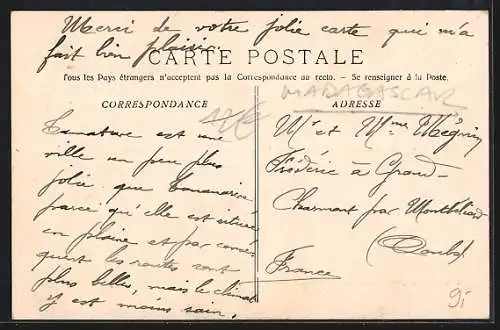 Merci de votre jolie carte qui m'a
fait bien plaisir.
CARTE POSTALE
Tous les Pays étrangers n'acceptent pas la Correspondance au recto. — Se renseigner à la Poste.
MADAGASCAR
CORRESPONDANCE
Tamatave est une
ville un peu plus
jolie que Tananarive
parce qu'elle est située
en plaine et par consé-
quent les routes sont
plus belles, mais le climat
y est moins sain.
ADRESSE
Mr et Mme Mégnin
Frédéric à Grand-
Charmont par Montbéliard
(Doubs)
France